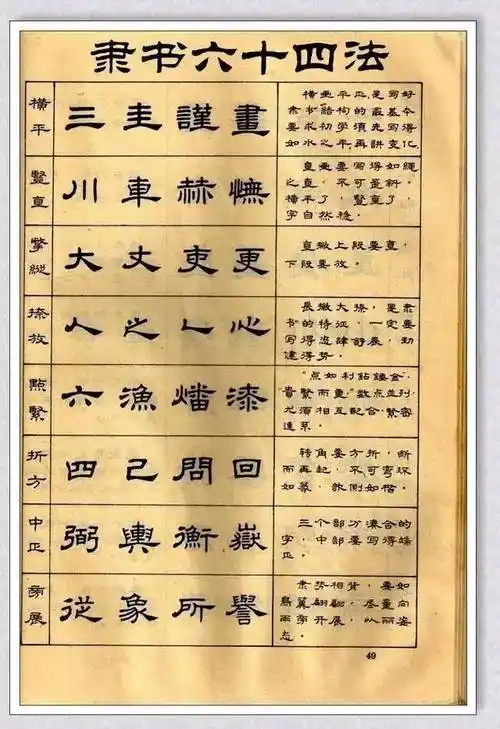 隶书六十四法
横平
三 圭 謹 畫
横要平正,是写好
隶书结构的最基本
要求,初学须先写得
如水之平,再讲变化
豎直
川 車 赫 憮
直画要写得如绳
之直,不可歪斜,
横平了,豎直了,
字自然稳。
撇縱
大 丈 吏 更
直撇上段要直,
下段要放。
捺放
人 之 乚 心
長撇大捺,是隶
书的特征,一定要
写得遒肆舒展,劲
健得势。
點緊
六 漁 燔 漆
“点如利鉆鏤金”,
貴緊而重,数点並列,
尤須相互配合,緊密
連系。
折方
四 己 問 回
转角要方折,断
而再起,不可弯环
如篆,
如楷。
中正
弼 輿 衡 嶽
三个部分凑合的
字,中部要写得端
正。
展
從 象 所 譽
隶势相背,要如
鳥翼翩翩,尽量向
两旁开展,以
态。
49